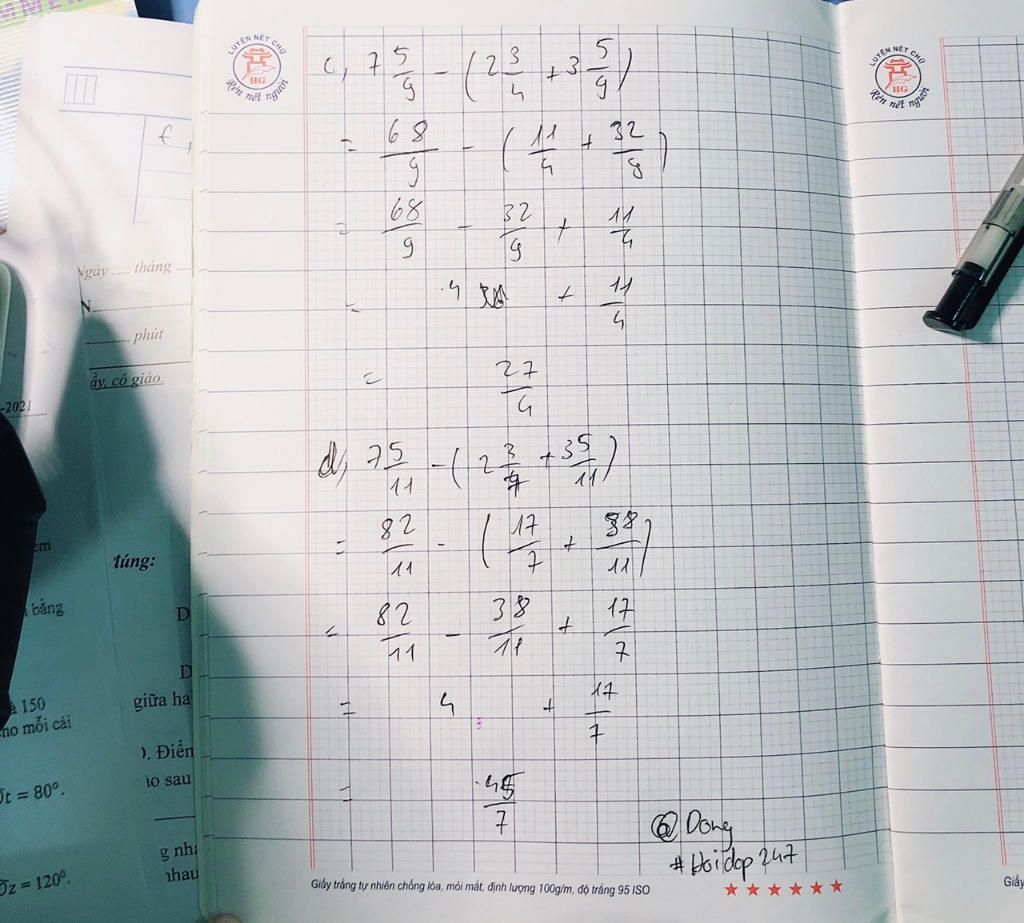 LUYỆN NÉT CHỮ
HG
Rèn nết người
c, 7 5/9 - (2 3/4 + 3 5/9)
= 68/9 - (11/4 + 32/9)
= 68/9 - 32/9 + 11/4
= 4 + 11/4
= 27/4
d, 7 5/11 - (2 3/7 + 3 5/11)
= 82/11 - (17/7 + 38/11)
= 82/11 - 38/11 + 17/7
= 4 + 17/7
= 45/7
@ Dong
#Hoidap247
Giấy trắng tự nhiên chống lóa, mỏi mắt, định lượng 100g/m, độ trắng 95 ISO
LUYỆN NÉT CHỮ
HG
Rèn nết người
Giấy
Ngày ..... tháng
N
phút
ầy, cô giáo.
-2021
túng:
bảng
D
D
giữa ha
150
ho mỗi cái
). Điền
io sau
t = 80°.
g nha
nhau
Oz = 120°.